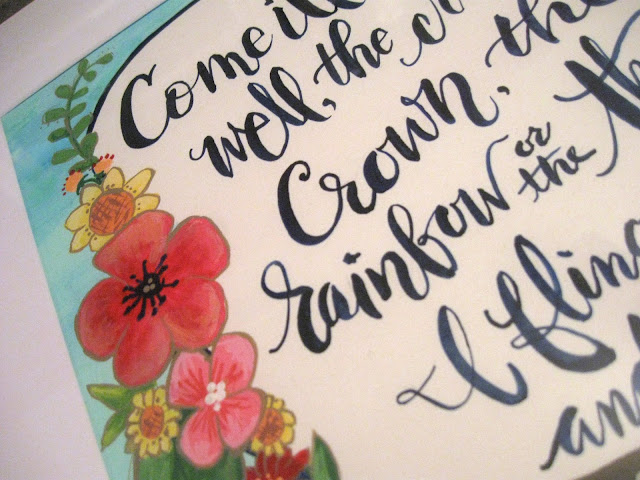 Come
well, the
Crown, the
rainbow or the
I fling
and